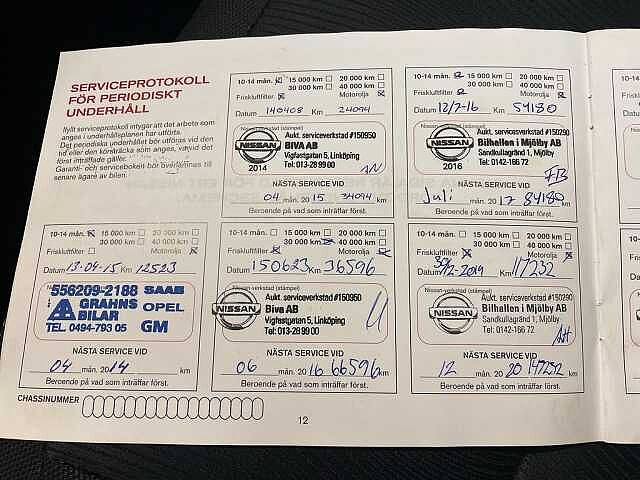 SERVICEPROTOKOLL
FÖR PERIODISKT
UNDERHÅLL
Ifyllt serviceprotokoll intygar att det arbete som
anges i underhållsplanen har utförts.
Det periodiska underhållet bör utföras vid den
tid eller den körsträcka som anges, vid det
först inträffade gäller.
Garanti- och serviceboken bör överlämnas till
senare ägare av bilen.
10-14 mån. 15 000 km 20 000 km
30 000 km 40 000 km
Friskluftfilter Motorolja
Datum 140408 Km 24094
Nissan-verkstad (stämpel)
NISSAN
2014
Aukt. serviceverkstad #150950
BIVA AB
Vigfastgatan 5, Linköping
Tel: 013-28 99 00
AN
NÄSTA SERVICE VID
04 mån. 20 15 34094 km
Beroende på vad som inträffar först.
10-14 mån. 15 000 km 20 000 km
30 000 km 40 000 km
Friskluftfilter Motorolja
Datum 12/7-16 Km 54180
Nissan-verkstad (stämpel)
NISSAN
2016
Aukt. serviceverkstad #150290
Bilhallen i Mjölby AB
Sandkullagränd 1, Mjölby
Tel: 0142-166 72
FB
NÄSTA SERVICE VID
Juli mån. 20 17 84180 km
Beroende på vad som inträffar först.
10-14 mån. 15 000 km 20 000 km
30 000 km 40 000 km
Friskluftfilter Motorolja
Datum 13-04-15 Km 12523
556209-2188 SAAB
GRAHNS OPEL
BILAR
TEL. 0494-793 05 GM
NÄSTA SERVICE VID
04 mån. 20 14 km
Beroende på vad som inträffar först.
10-14 mån. 15 000 km 20 000 km
30 000 km 40 000 km
Friskluftfilter Motorolja
Datum 150623 Km 36596
Nissan-verkstad (stämpel)
NISSAN
Aukt. serviceverkstad #150950
Biva AB
Vigfastgatan 5, Linköping
Tel: 013-28 99 00
NÄSTA SERVICE VID
06 mån. 20 16 66596 km
Beroende på vad som inträffar först.
10-14 mån. 15 000 km 20 000 km
30 000 km 40 000 km
Friskluftfilter Motorolja
Datum 30/12-2019 Km 117232
Nissan-verkstad (stämpel)
NISSAN
Aukt. serviceverkstad #150290
Bilhallen i Mjölby AB
Sandkullagränd 1, Mjölby
Tel: 0142-166 72
AH
NÄSTA SERVICE VID
12 mån. 20 20 147232 km
Beroende på vad som inträffar först.
CHASSINUMMER
12